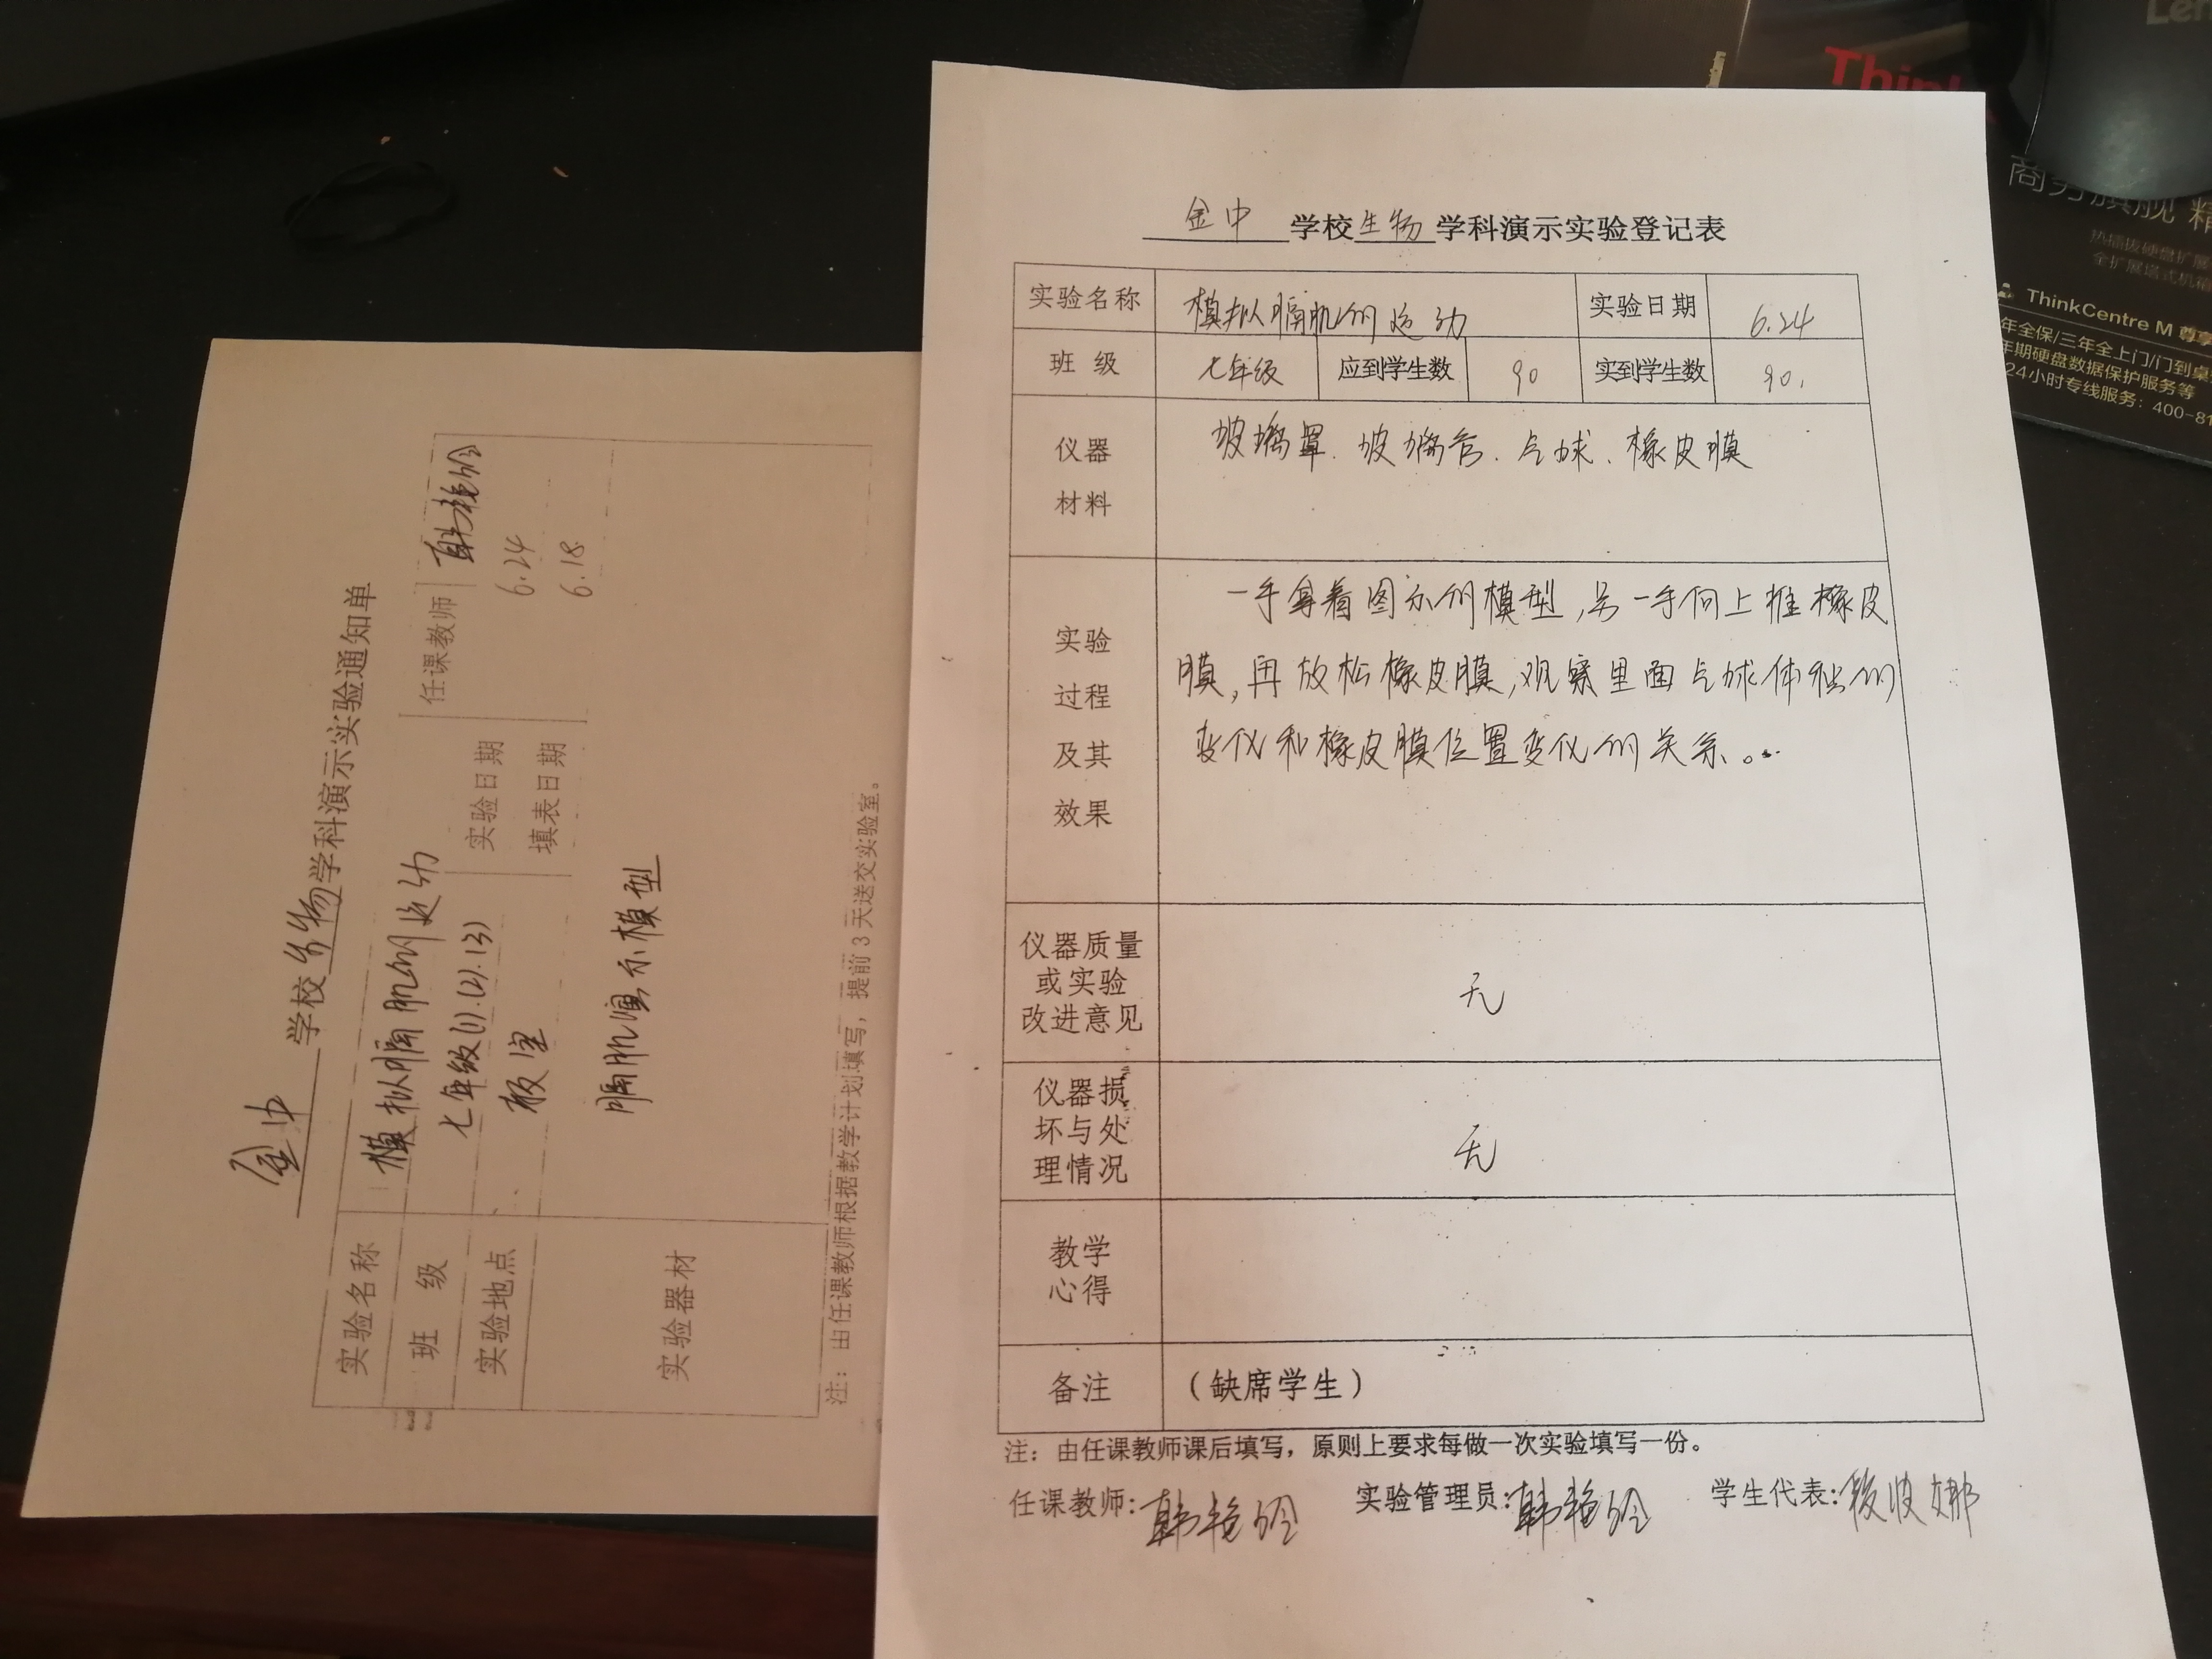 金中 学校 生物 学科演示实验通知单
实验名称 模拟膈肌的运动 任课教师
班 级 七年级(1).(2).(3) 实验日期 6.24
实验地点 教室 填表日期 6.18
实验器材 膈肌演示模型
注：由任课教师根据教学计划填写，提前3天送交实验室。
金中 学校 生物 学科演示实验登记表
实验名称 模拟膈肌的运动 实验日期 6.24
班 级 七年级 应到学生数 90 实到学生数 90.
仪器
材料
玻璃罩.玻璃管.气球、橡皮膜
实验
过程
及其
效果
一手拿着图示的模型,另一手向上推橡皮
膜,再放松橡皮膜,观察里面气球体积的
变化和橡皮膜位置变化的关系。
仪器质量
或实验
改进意见
无
仪器损
坏与处
理情况
无
教学
心得
备注 （缺席学生）
注：由任课教师课后填写，原则上要求每做一次实验填写一份。
任课教师: 实验管理员: 学生代表:
Think
Len
商务旗舰 精
热插拔硬盘扩展
全扩展塔式机箱
ThinkCentre M 尊享
年全保/三年全上门/门到桌
年期硬盘数据保护服务等
24小时专线服务：400-81